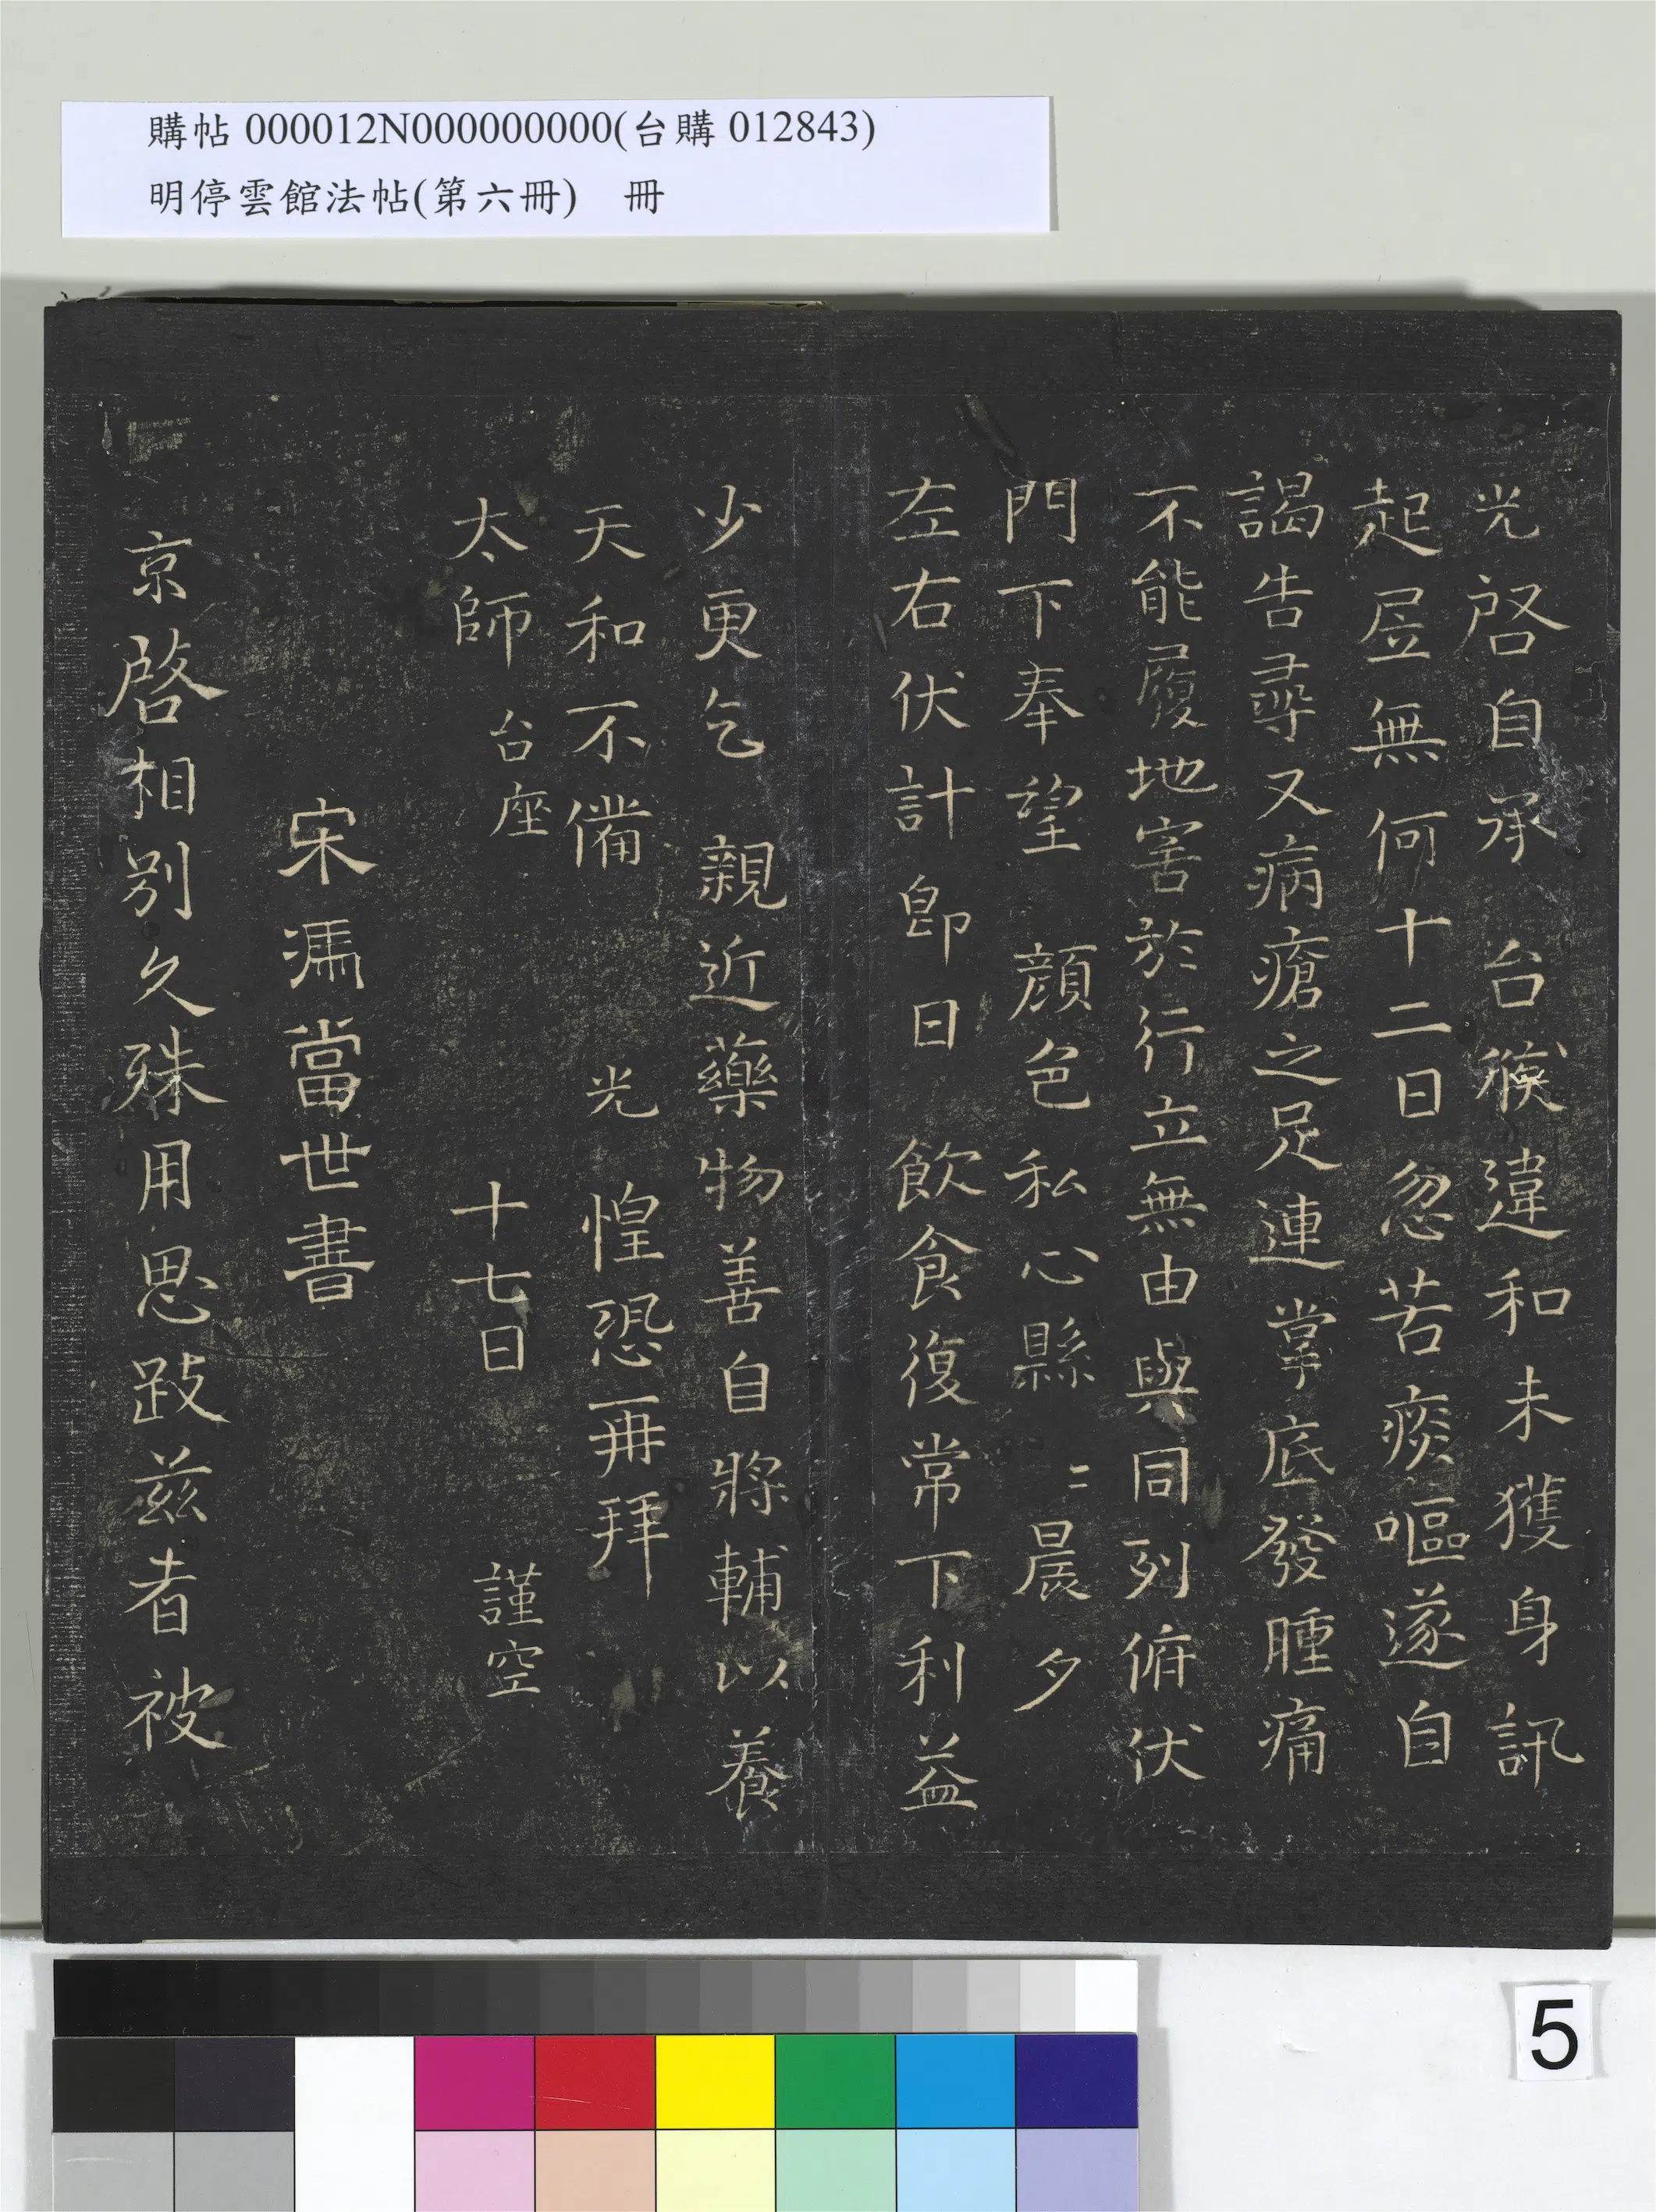 購帖 000012N000000000(台購 012843)
明停雲館法帖(第六冊)　冊
光啓自承　台候違和未獲身訊
起居無何十二日忽苦痰嘔遂自
謁告尋又病瘡之足連掌底發腫痛
不能履地害於行立無由與同列俯伏
門下奉望　顏色私心縣〻晨夕
左右伏計即日　飲食復常下利益
少更乞　親近藥物善自將輔以養
天和不備　光　惶恐再拜
太師　台座　十七日　謹空
宋馮當世書
京啓相別久殊用思跂茲者被
5